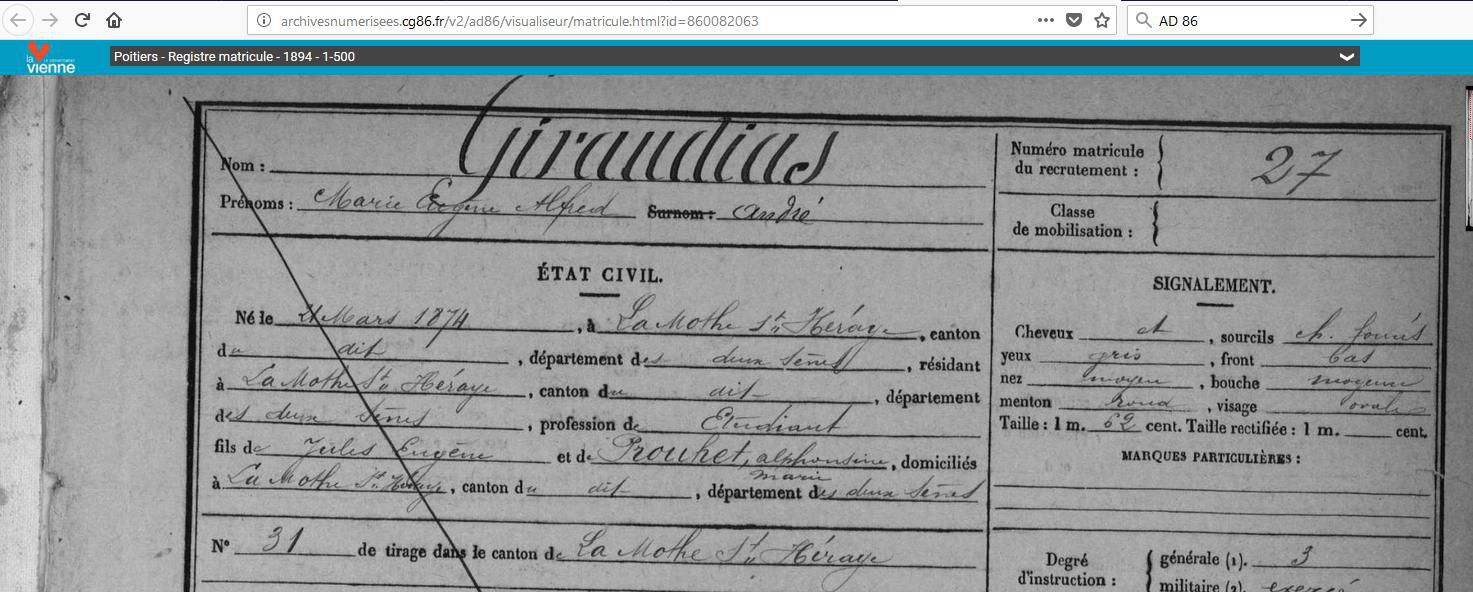 archivesnumerisees.cg86.fr/v2/ad86/visualiseur/matricule.html?id=860082063
AD 86
la vienne
Poitiers - Registre matricule - 1894 - 1-500
Nom : Giraudias
Prénoms : Marie Eugène Alfred Surnom : André
Numéro matricule du recrutement : 27
Classe de mobilisation :
ÉTAT CIVIL.
Né le Mars 1874, à La Mothe Ste Héraye, canton
du dit, département des deux Sèvres, résidant
à La Mothe Ste Héraye, canton du dit, département
des deux Sèvres, profession de Etudiant
fils de Jules Eugène et de Prouhet, alphonsine, domiciliés
marie
à La Mothe Ste Héraye, canton du dit, département des deux Sèvres
N° 31 de tirage dans le canton de La Mothe Ste Héraye
SIGNALEMENT.
Cheveux, sourcils ch.
yeux gris, front bas
nez moyen, bouche moyenne
menton rond, visage ovale
Taille : 1 m. 62 cent. Taille rectifiée : 1 m. cent.
MARQUES PARTICULIÈRES :
Degré d'instruction :
générale (1). 3
militaire (2). exercé